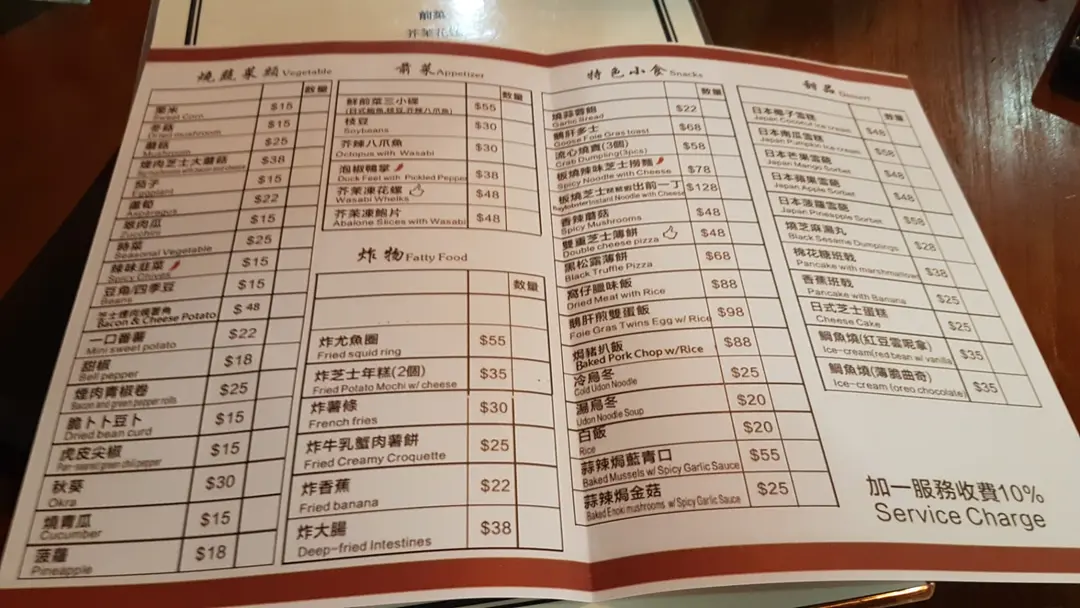 前菜
燒蔬菜類 Vegetable
數量
粟米 $15
Sweet Corn
冬菇 $15
Dried mushroom
蘑菇 $25
Mushroom
煙肉芝士大蘑菇 $38
Bacon mushrooms with bacon and cheese
茄子 $15
Eggplant
露筍 $22
Asparagus
翠肉瓜 $15
Zucchini
時菜 $25
Seasonal Vegetable
辣味韮菜 $15
Spicy Chives
豆角/四季豆 $15
Beans
芝士煙肉燒薯角 $48
Bacon & Cheese Potato
一口番薯 $22
Mini sweet potato
甜椒 $18
Bell pepper
煙肉青椒卷 $25
Bacon and green pepper rolls
脆卜卜豆卜 $15
Dried bean curd
虎皮尖椒 $15
Pan-seared green chili pepper
秋葵 $30
Okra
燒青瓜 $15
Cucumber
菠蘿 $18
Pineapple
前菜 Appetizer
數量
鮮前菜三小碟 $55
枝豆 $30
Soybeans
芥辣八爪魚 $30
Octopus with Wasabi
泡椒鴨掌 $38
Duck Feet with Pickled Pepper
芥茉凍花螺 $48
Wasabi Whelks
芥茉凍鮑片 $48
Abalone Slices with Wasabi
炸物 Fatty Food
數量
炸尤魚圈 $55
Fried squid ring
炸芝士年糕(2個) $35
Fried Potato Mochi w/ cheese
炸薯條 $30
French fries
炸牛乳蟹肉薯餅 $25
Fried Creamy Croquette
炸香蕉 $22
Fried banana
炸大腸 $38
Deep-fried Intestines
特色小食 Snacks
數量
燒蒜蓉飽 $22
Garlic Bread
鵝肝多士 $68
Goose Foie Gras toast
流心燒賣(3個) $58
Crab Dumpling(3pcs)
板燒辣味芝士撈麵 $78
Spicy Noodle with Cheese
板燒芝士琵琶蝦出前一丁 $128
Baylobster Instant Noodle with Cheese
香辣蘑菇 $48
Spicy Mushrooms
雙重芝士薄餅 $48
Double cheese pizza
黑松露薄餅 $68
Black Truffle Pizza
窩仔臘味飯 $88
Dried Meat with Rice
鵝肝煎雙蛋飯 $98
Foie Gras Twins Egg w/ Rice
焗豬扒飯 $88
Baked Pork Chop w/Rice
冷烏冬 $25
Cold Udon Noodle
湯烏冬 $20
Udon Noodle Soup
白飯 $20
Rice
蒜辣焗藍青口 $55
Baked Mussels w/ Spicy Garlic Sauce
蒜辣焗金菇 $25
Baked Enoki mushrooms w/ Spicy Garlic Sauce
甜品 Dessert
數量
日本椰子雪糕 $48
Japan Coconut Ice cream
日本南瓜雪糕 $58
Japan Pumpkin Ice cream
日本芒果雪葩 $48
Japan Mango Sorbet
日本蘋果雪葩 $48
Japan Apple Sorbet
日本菠蘿雪葩 $58
Japan Pineapple Sorbet
燒芝麻湯丸 $28
Black Sesame Dumplings
棉花糖班戟 $38
Pancake with marshmallow
香蕉班戟 $25
Pancake with Banana
日式芝士蛋糕 $25
Cheese Cake
鯛魚燒(紅豆雲呢拿) $35
Ice-cream(red bean w/ vanilla
鯛魚燒(薄脆曲奇) $35
Ice-cream (oreo chocolate)
加一服務收費10%
Service Charge